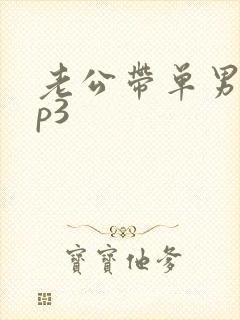 老公带单男
p3
寶寶他爹